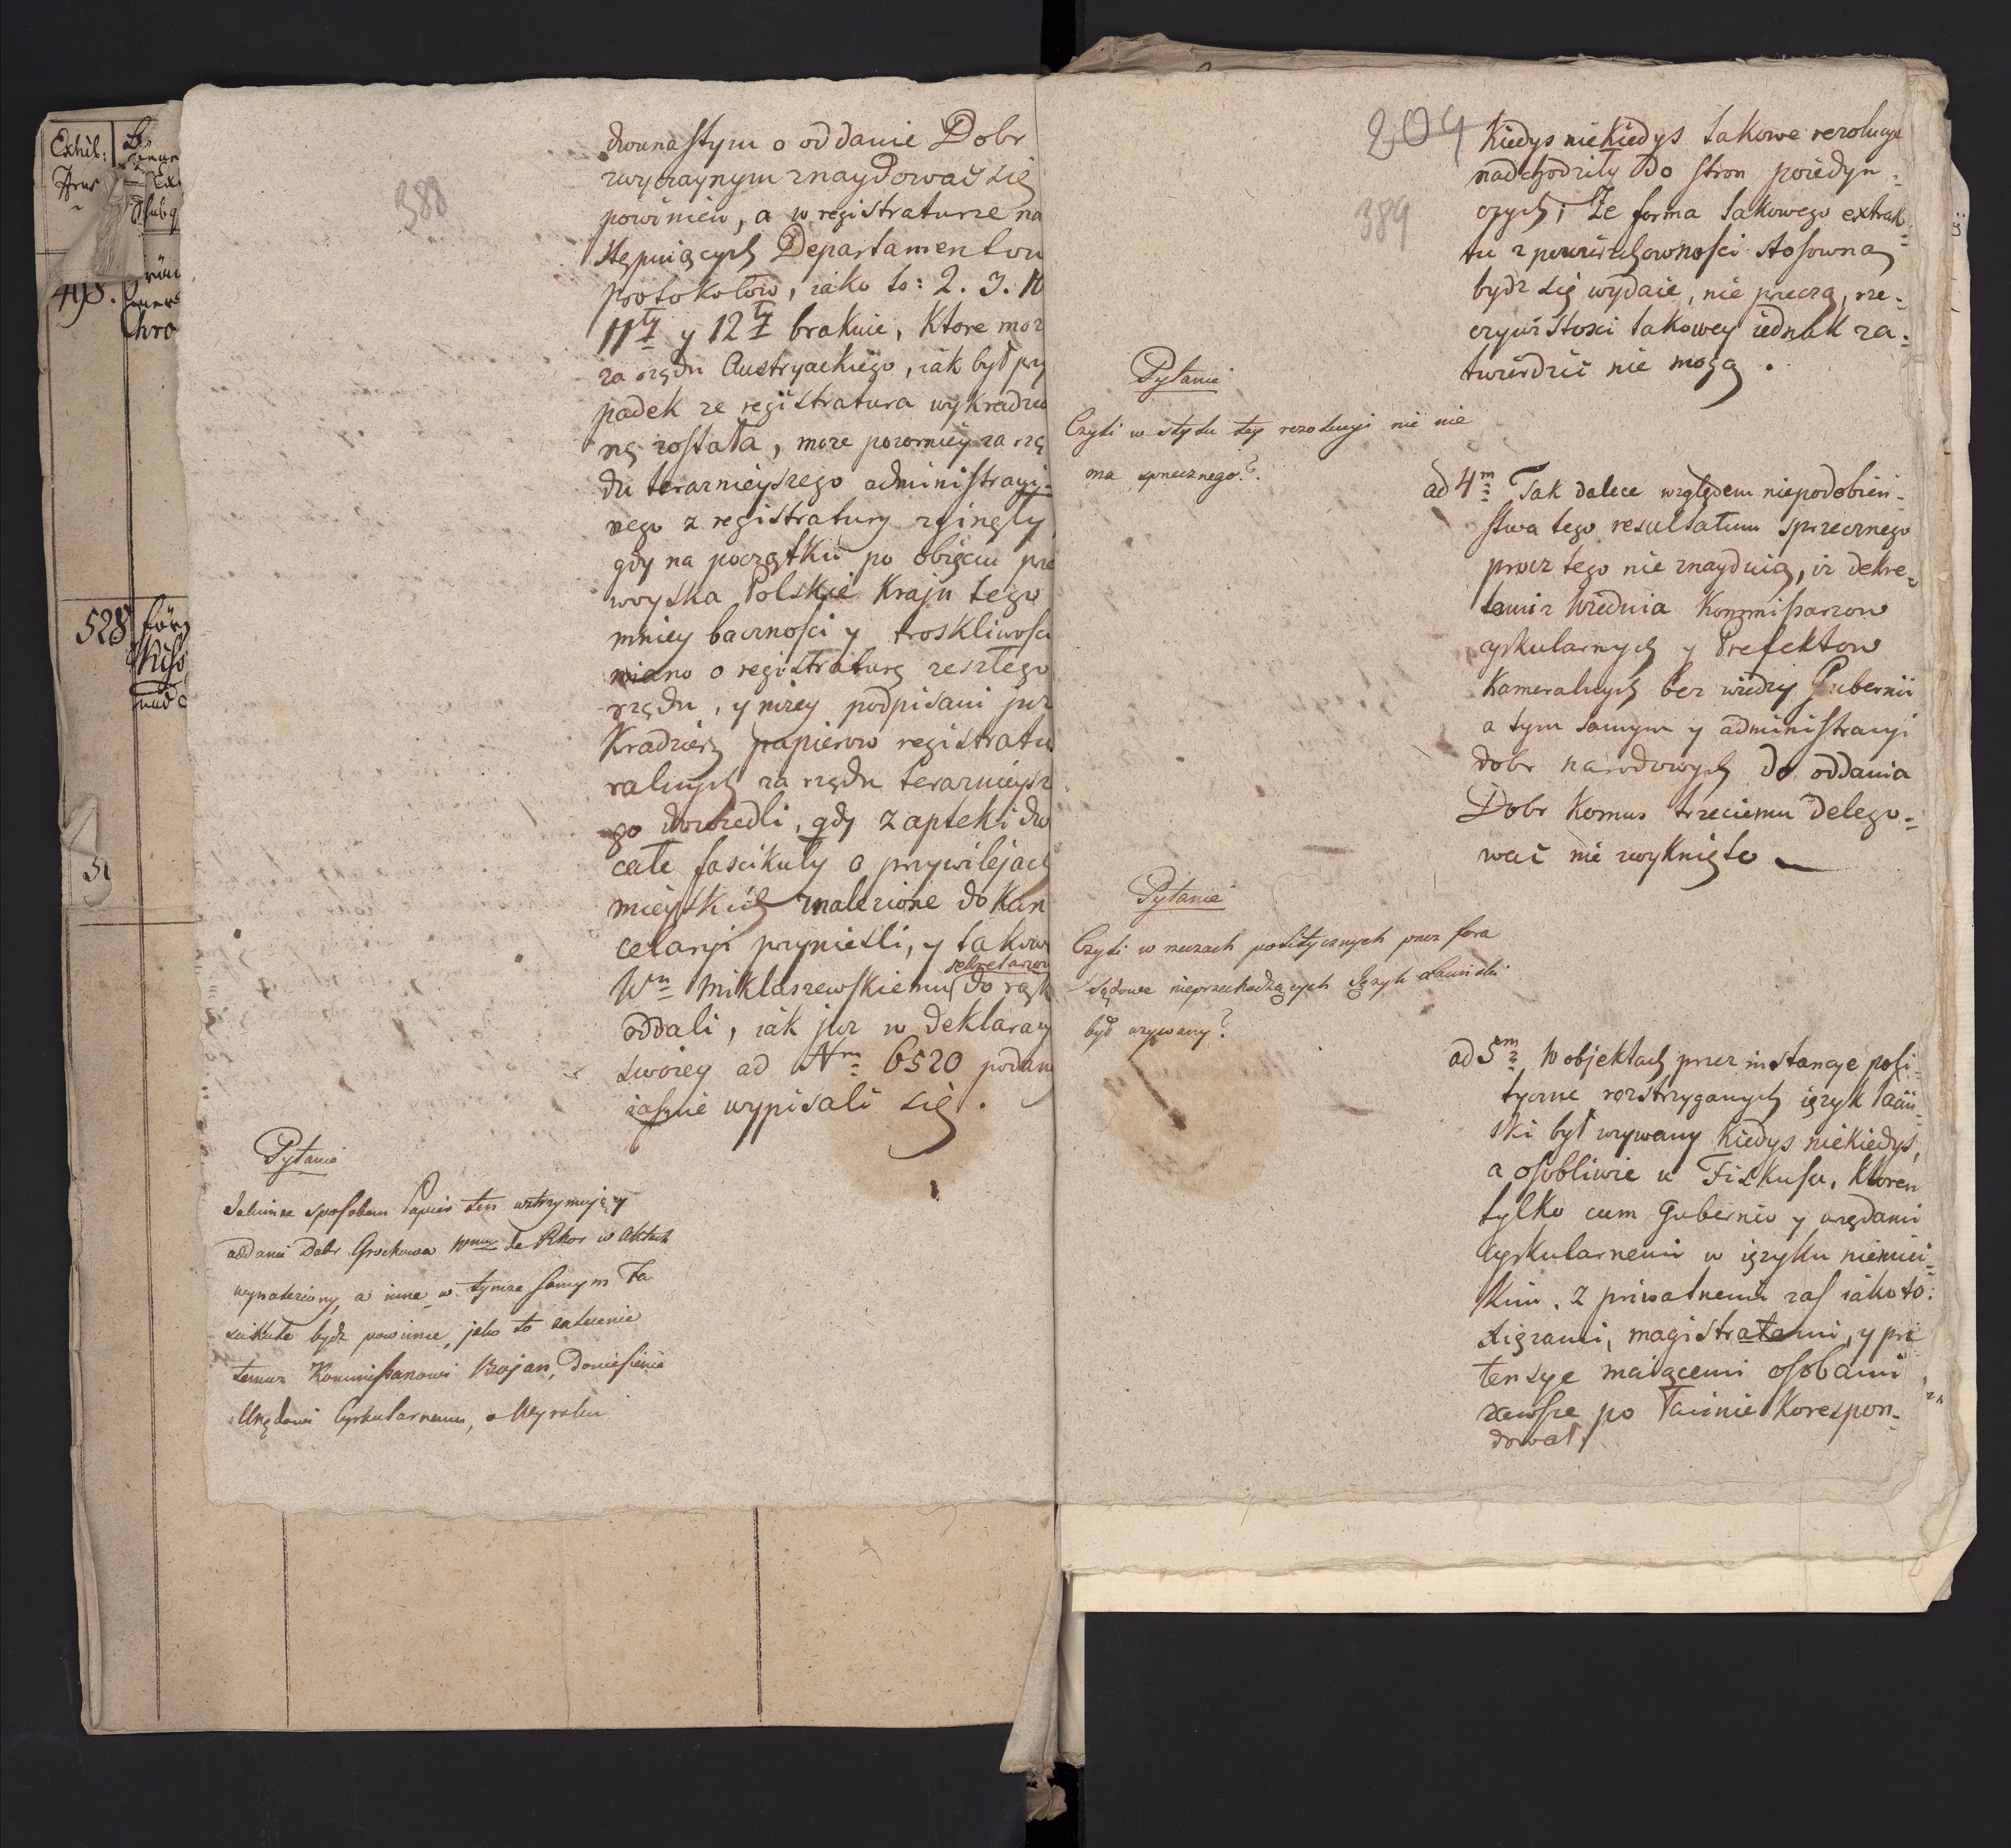 Exhib:
498.
528
388
dwunastym o oddanie Dobr
zwyczaynym znaydować się
powinien, a w registraturze na
stępuiących Departamentow
protokołow, iako to: 2. 3. 10
11ty y 12ty brakuie, Ktore moz
za rządu Austryackiego, iak był przy
padek ze registratura wykradzio
ną została, moze pozorniey za rzą
du terarnieyszego administracyi=
nego z registratury zginęły,
gdy na początku po obięciu prze
woyska Polskie Kraju tego
mniey baczności y troskliwości
miano o registraturę zeszłego
rządu, y nizey podpisani juz
Kradziez papierow registratu
ralnych za rządu terarnieysz
go dowiedli, gdy z apteki dw
całe fascikuły o przywilejach
mieyskich znalezione do Kan
celaryi przynieśli, y takow
sekretarzow
Wm Miklaszewskiemu do rąk
oddali, iak juz w deklaracy
swoiey ad Nm 6520 podan
iaśnie wypisali się.
Pytanie
Jakimze sposobem Papier ten wstrzymuięcy
oddanie Dobr Grochowa Wmu de Rhor w Aktach
wynaleziony, a inne w tymze samym Fa
scikule bydz powinne, jako to zalecenie
temuz Kommissarzowi Bojan, doniesienie
Urzędowi Cyrkularnemu, o Wyroku
204
389
Kiedys niekiedys takowe rezolucye
nadchodziły do stron poiedyn=
czych; Ze forma takowego extrak=
tu z powierzchowności stosowna
bydz się wydaie, nie przeczą, rze=
czywistości takowey iednak za=
twierdzić nie mogą.
Pytanie
Czyli w stylu tey rezolucyi nic nie
ma sprzecznego?
ad 4m Tak dalece względem niepodobień=
stwa tego resultatum sprzecznego
procz tego nie znayduią, iz dekre=
tami z Wiednia Kommissarzow
cyrkularnych y Prefektow
Kameralnych bez wiedzy Gubernii
a tym samym y administracyi
dobr narodowych do oddania
Dobr Komus trzeciemu delego=
wać nie zwyknięto
Pytanie
Czyli w rzeczach politycznych przez fora
Sądowe nieprzechodzących Język Łaciński
był uzywany?
ad 5m W objektach przez instancye poli=
tyczne rozstrzyganych ięzyk łaciń=
ski był uzywany kiedys niekiedys,
a osobliwie u Fiskusa, Ktoren
tylko cum Gubernio y urzędami
Cyrkularnemi w ięzyku niemiec=
kim, z priwatnemi zaś iako to:
xięzami, magistratami, y pre
tensye maiącemi osobami
zawsze po łacinie Korespon=
dował.